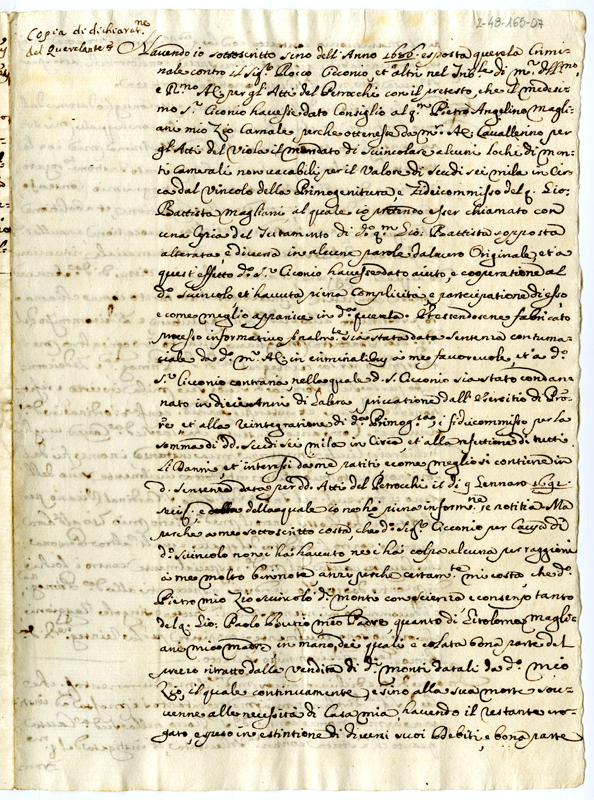 2-48-165-07
Copia di dichiarat.ne
del Querelante
Havendo io sottoscritto sino dell'Anno 1686. esposta querela Crimi-
nale contro il Sig.r Rocco Ciconio, et altri nel Trib.le di m.r
e R.mo AC. per gl'Atti del Petrocchi con il pretesto, che il medesi-
mo S.r Ciconio havesse dato Consiglio al q.m Pietro Angelino Magli-
ani mio Zio Carnale, perche ottenesse da m.r AC. Cavallerino per
gl'Atti del Viola il mandato di svincolare alcuni lochi di mon-
ti Camerali non vacabili per il Valore di scudi sei mila in Cir-
ca dal Vincolo della Primogenitura, e Fideicommisso del q. Gio:
Battista Magliani al quale io pretendo esser chiamato con
una Copia del Testamento di d.o q.m Gio: Battista supposta
alterata, e diversa in alcune parole dal vero Originale, et a
quest'effetto d.o S.r Ciconio havesse dato aiuto, e cooperatione al
d.o svincolo et havuta piena Complicità, e partecipatione di esso
e come meglio apparisce in d.a querela. Pretendosene fabricato
processo informativo finalm.te sia stata data sentenza contuma-
ciale da d.o m.r AC. in criminalibus à me favorevole, et a d.o
S.r Ciconio contraria, nella quale d. S. Ciconio sia stato condan-
nato in dieci Anni di Galera, privatione dall'Esercitio di Pro-
re, et alla reintegratione di d.o Primog.ra, i fideicommisso per la
somma di dd. scudi sei mila in Circa, et alla refettione di tutti
li Danni, et interessi da me patiti e come meglio si contiene in
d. sentenza data per dd. Atti del Petrocchi il di 9 Gennaro 1691.
della quale io no ho piena inform.ne, se notitia Ma
perche a me sottoscritto costa che d.o Sig.r Ciconio per causa di
d.o svincolo non ci hà havuto ne ci hà colpa alcuna per raggioni
à me molto ben note, anzi perche certam.te mi costa che d.o
Pietro mio Zio svincolò d.i monti con scienza e consenso tanto
del q. Gio: Paolo mio Padre, quanto di Girolama Magli-
ani mia madre in mano dei quali è colata bona parte del
prezzo ritratto dalla vendita di d.i monti datali da d.o mio
Zio, il quale continuamente, e sino alla sua morte sov-
venne alle necessità di Casa mia, havendo il restante ero-
gato, e speso in estintione di diversi suoi Debiti, e bona parte